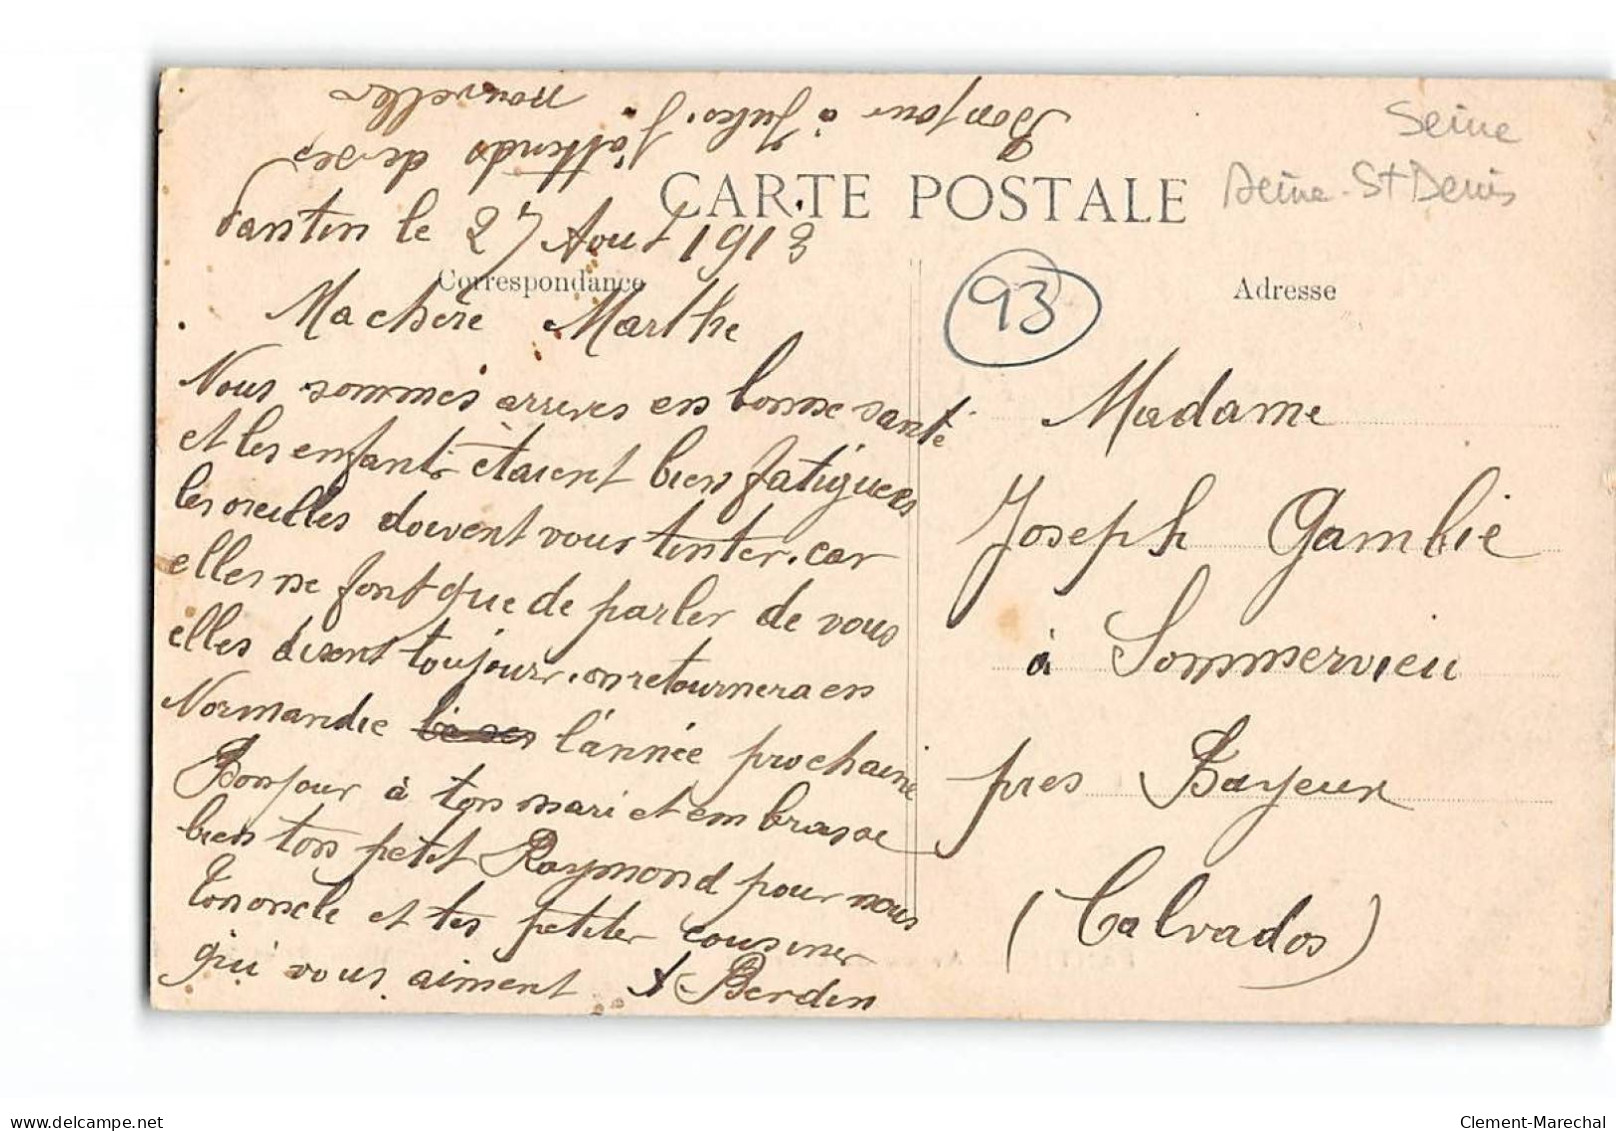 Bonjour à Jules. J'attends de ses
nouvelles
CARTE POSTALE
Seine
Seine-St Denis
Pantin le 27 Aout 1913
Correspondance
Ma chère Marthe
Nous sommes arrives en bonne santé
et les enfants étaient bien fatiguées
les oreilles doivent vous tinter. car
elles ne font que de parler de vous
elles disent toujours. on retournera en
Normandie l'année prochaine
Bonjour à ton mari et embrasse
bien ton petit Raymond pour nous
ton oncle et tes petites cousines
qui vous aiment Berdin
93
Adresse
Madame
Joseph Gambie
à Sommervieu
près Bayeux
(Calvados)
www.delcampe.net
Clement-Marechal